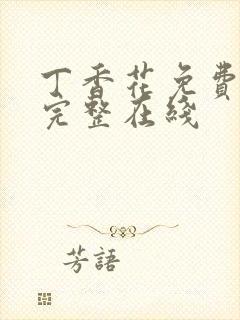 丁香花免费
完整在线
芳語